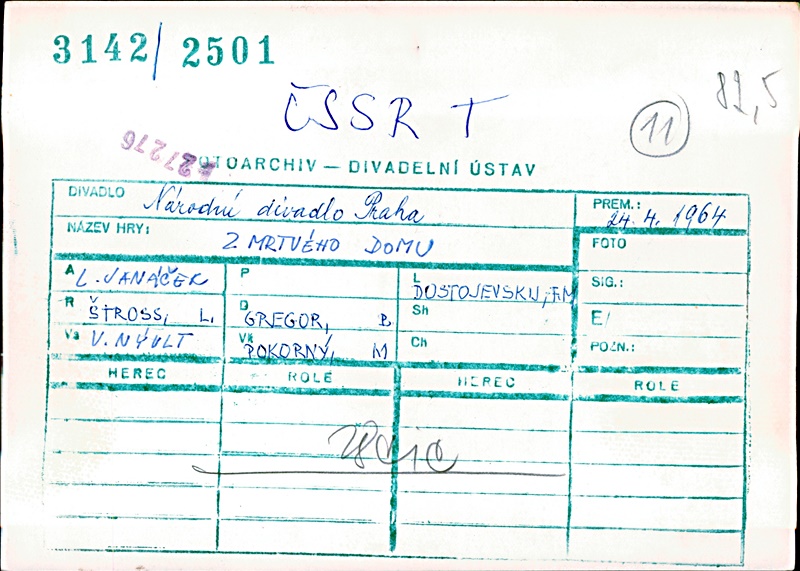 3142/ 2501
82,5
ČSSR T
11
427276
FOTOARCHIV — DIVADELNÍ ÚSTAV
DIVADLO Národní divadlo Praha
PREM.: 24. 4. 1964
NÁZEV HRY: Z MRTVÉHO DOMU
FOTO
A L. JANÁČEK
P
L DOSTOJEVSKIJ, F.M
SIG.:
R ŠTROSS, L.
D GREGOR, B
Sh
E/
Va V. NÝVLT
Vk POKORNÝ, M
Ch
POZN.:
HEREC ROLE HEREC ROLE